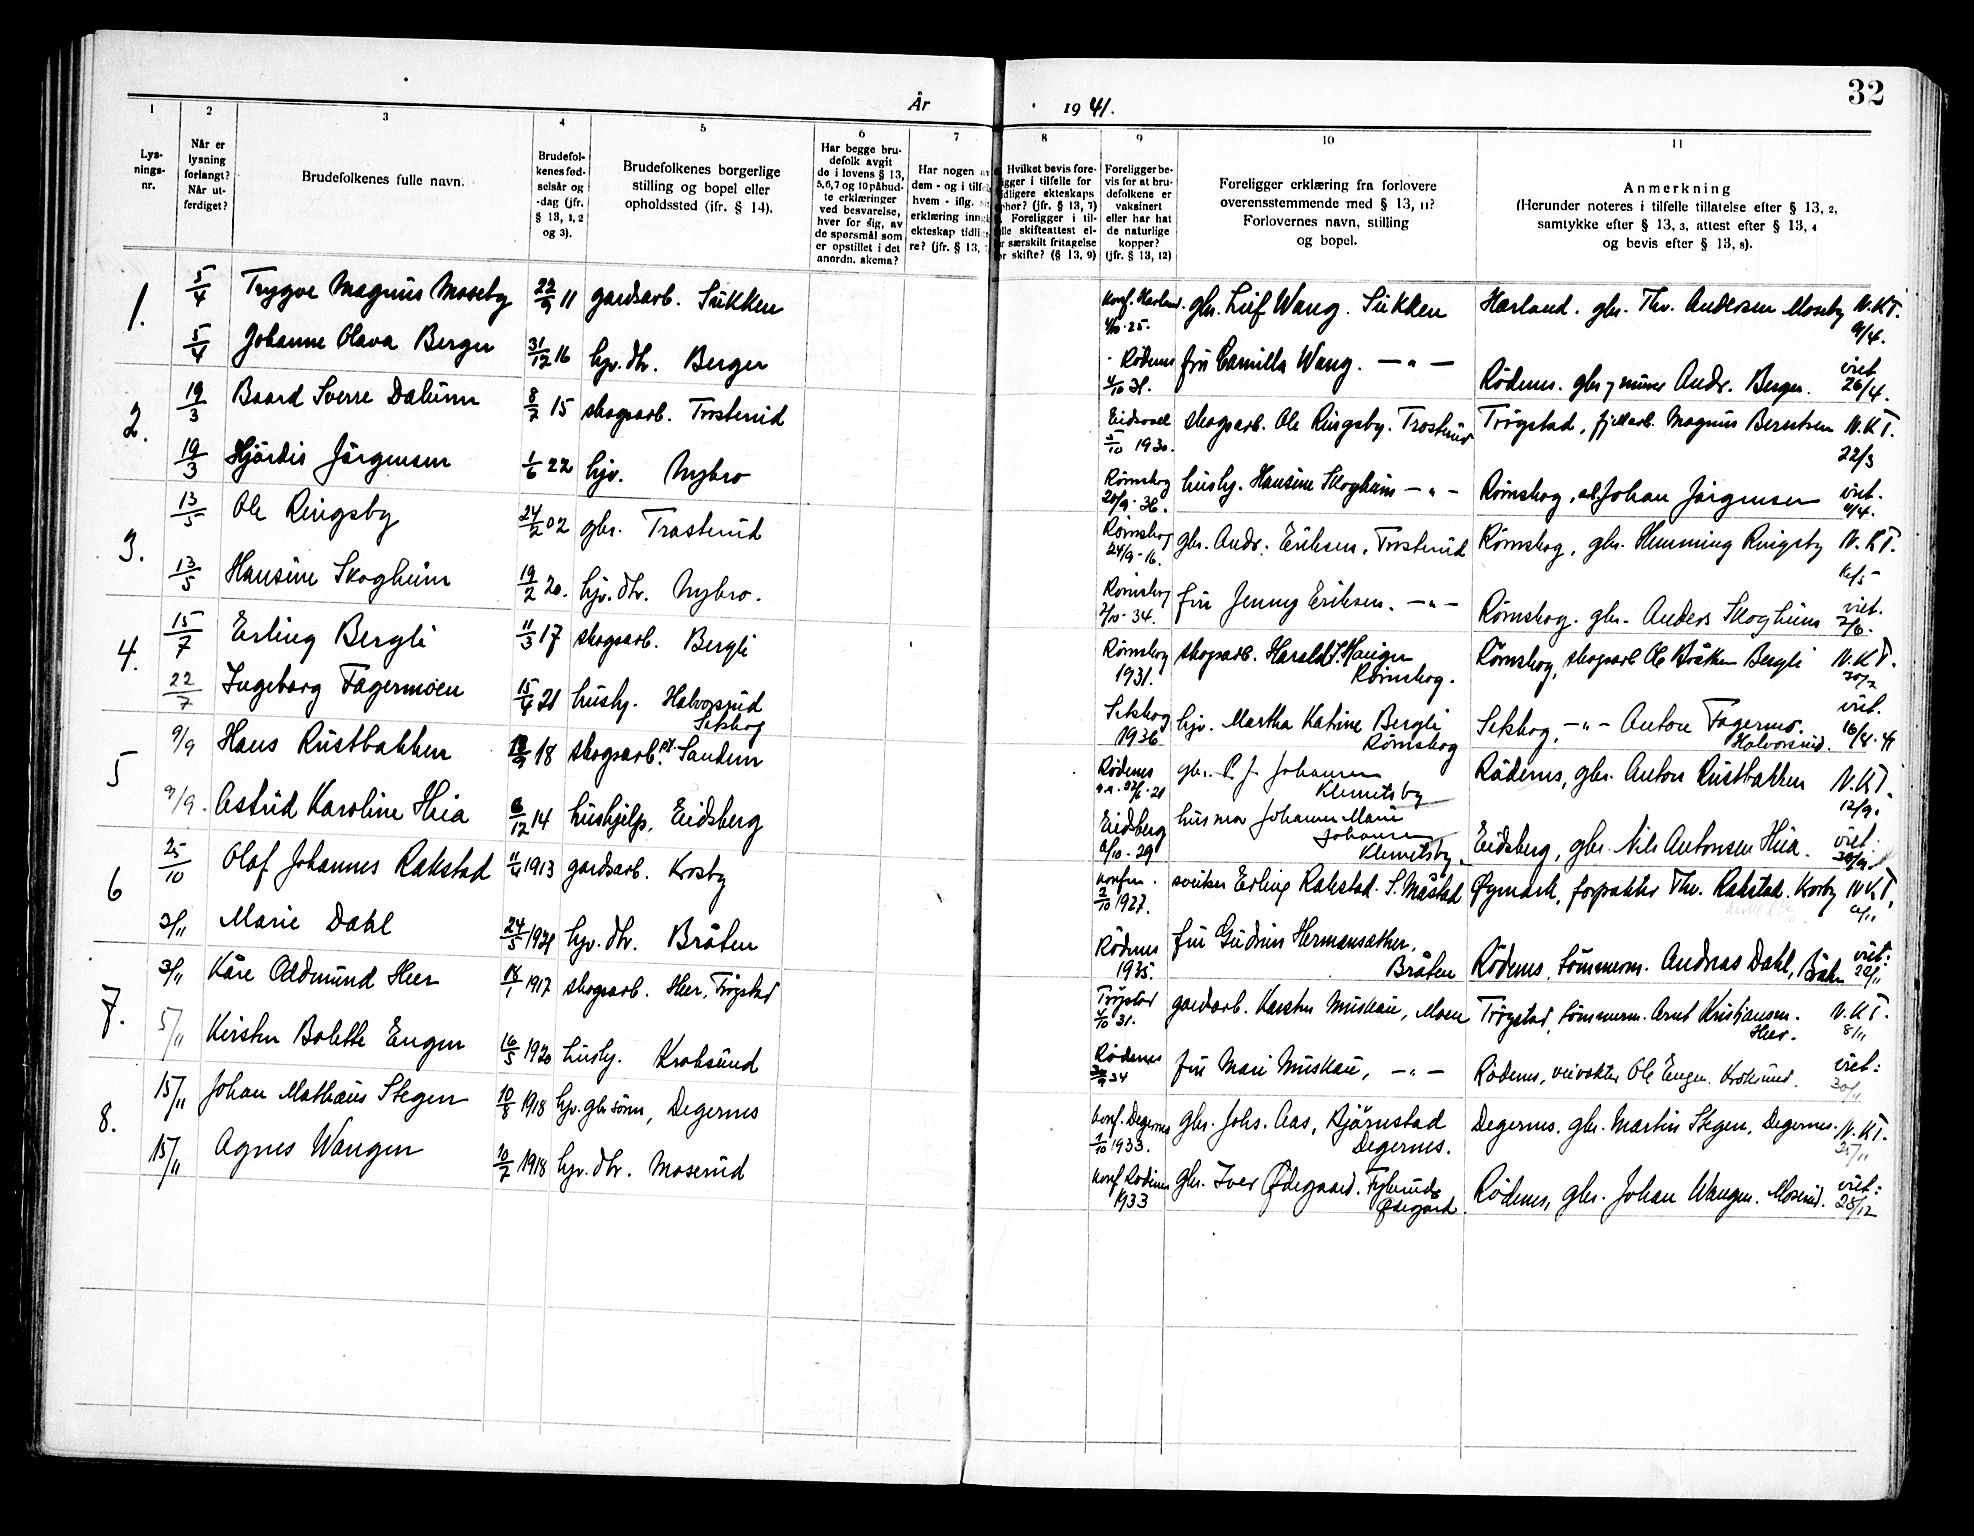 32
År 1941.
1 2 3 4 5 6 7 8 9 10 11
Lys-
nings-
nr.
Når er
lysning
forlangt?
Når ut-
ferdiget?
Brudefolkenes fulle navn.
Brudefol-
kenes fød-
selsår og
-dag (jfr.
§ 13, 1, 2
og 3).
Brudefolkenes borgerlige
stilling og bopel eller
opholdssted (jfr. § 14).
Har begge bru-
defolk avgit
de i lovens § 13,
5, 6, 7 og 10 påbud-
te erklæringer
ved besvarelse,
hver for sig, av
de spørsmål som
er opstillet i det
anordn. skema?
Har nogen av
dem - og i tilfe
hvem - iflg.
erklæring inng
ekteskap tidlig
re? (jfr. § 13,
Hvilket bevis fore-
igger i tilfelle for
idligere ekteskaps
phør? (jfr. § 13, 7)
Foreligger i til-
lle skifteattest el-
r særskilt fritagelse
or skifte? (§ 13, 9)
Foreligger be-
vis for at bru-
defolkene er
vaksinert
eller har hat
de naturlige
kopper?
(jfr. § 13, 12)
Foreligger erklæring fra forlovere
overensstemmende med § 13, 11?
Forlovernes navn, stilling
og bopel.
Anmerkning
(Herunder noteres i tilfelle tillatelse efter § 13, 2,
samtykke efter § 13, 3, attest efter § 13, 4
og bevis efter § 13, 8).
1. 5/4 Trygve Magnus Moseby 22/9 11 gardsarb. Sukken gbr. Leif Wang. Sukken Harland. gbr. Thv. Andersen Moseby N.K.T. 9/4.
5/4 Johanne Olava Berger 31/12 16 hjv. dtr. Berger Rødenes 4/10 31. fru Camilla Wang. —"— Rødenes. gbr. Andr. Berger. viet 26/4.
2. 19/3 Baard Sverre Dalum 8/7 15 skogsarb. Trosterud Eidsvoll 5/10 1930. skogsarb. Ole Ringsby. Trosterud Trøgstad, fjellarb. Magnus Berntsen N.K.T. 22/3
19/3 Hjördis Jörgensen 1/6 22 hjv. Nybro Rømskog 20/9 36. hushj. Hansine Skogheim —"— Rømskog, Johan Jørgensen viet.
3. 13/5 Ole Ringsby 24/2 02 gbr. Trosterud Rømskog 24/9-16. gbr. Andr. Eriksen, Trosterud Rømskog, gbr. Hemming Ringsby N.K.T.
13/5 Hansine Skogheim 19/2 20. hjv. dtr. Nybro. Rømskog 2/10-34. fru Jenny Eriksen. —"— Rømskog. gbr. Anders Skogheim viet. 2/6.
4. 15/7 Erling Bergli 11/3 17 skogsarb. Bergli Rømskog 1931. skogsarb. Harald S. Haugen Rømskog. Rømskog, skogsarb Ole Bråthen Bergli N.K.T. 30/7
22/7 Ingeborg Fagermoen 15/4 21 hushj. Halvorsrud Setskog Setskog 1936 hjv. Martha Katrine Bergli Rømskog Setskog. —"— Anton Fagermo. Halvorsrud. viet. 16/8-41
5 9/9 Hans Rustbakken 18 skogsarb. Sandem Rødenes gbr. P. J. Johansen Klemetsby Rödenes, gbr. Anton Rustbakken N.K.T. 12/9.
9/9. Astrid Karoline Heia 6/12 14 hushjelp, Eidsberg Eidsberg 6/10-29 husmor Johanne Marie Johansen Klemetsby. Eidsberg, gbr. Nils Antonsen Heia. viet:
6 25/10 Olaf Johannes Rakstad 11/4 1913 gardsarb. Krosby konfn. 2/10 1927. sveiser Erling Rakstad. S. Måstad Øymark, forpakter Thv. Rakstad. Korby N.K.T.
3/11 Marie Dahl 24/5 1921 hjv. dtr. Bråten Rødenes 1935. fru Gudrun Hermansæther, Bråten Rödenes, tömmerm. Andreas Dahl, Bråten viet: 22/11
7. 3/11 Kåre Oddmund Heer 18/1 1917 skogsarb. Heer, Trøgstad Trøgstad 4/10 31. gardsarb. Karsten Muskau, Moen Trøgstad, tömmerm. Arnt Kristiansen. Heer. N.K.T. 8/11
5/11 Kirsten Bolette Engen 16/5 1920 hushj. Kroksund Rødenes 30/9 34 fru Mari Muskau, —"— Rødenes, veivokter Ole Engen. Kroksund. viet: 30/11
8. 15/11 Johan Mathæus Stegen 10/8 1918 hjv. gbr sönn, Degernes konf. Degernes 1/10 1933. gbr. Johs. Aas, Bjørnstad Degernes. Degernes. gbr. Martin Stegen, Degernes. N.K.T. 25/11
15/11 Agnes Wangen 10/2 1918 hjv. dtr. Moserud konf. Rödenes 1933 gbr. Iver Ødegaard. Fylerud Ødegård. Rödenes, gbr. Johan Wangen. Moserud. viet: 28/12